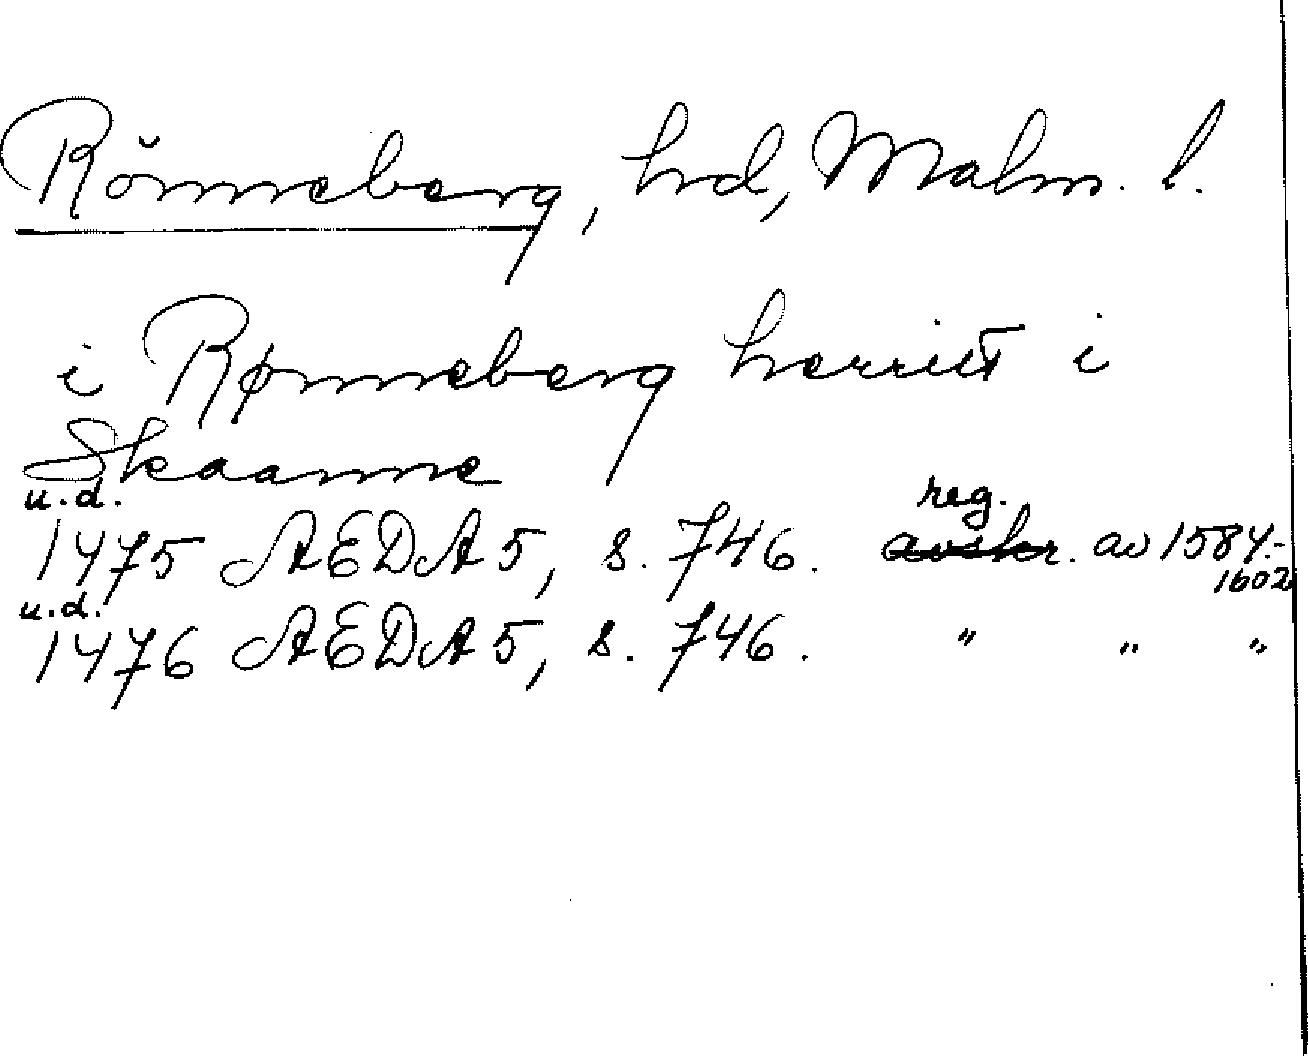 Rönneberg, hrd, Malm. l.
i Rønneberg herritt i
Skaanne
u.d. reg.
1475 ÆDA 5, s. 746. avskr. av 1584-
1602
u.d.
1476 ÆDA 5, s. 746. " " "